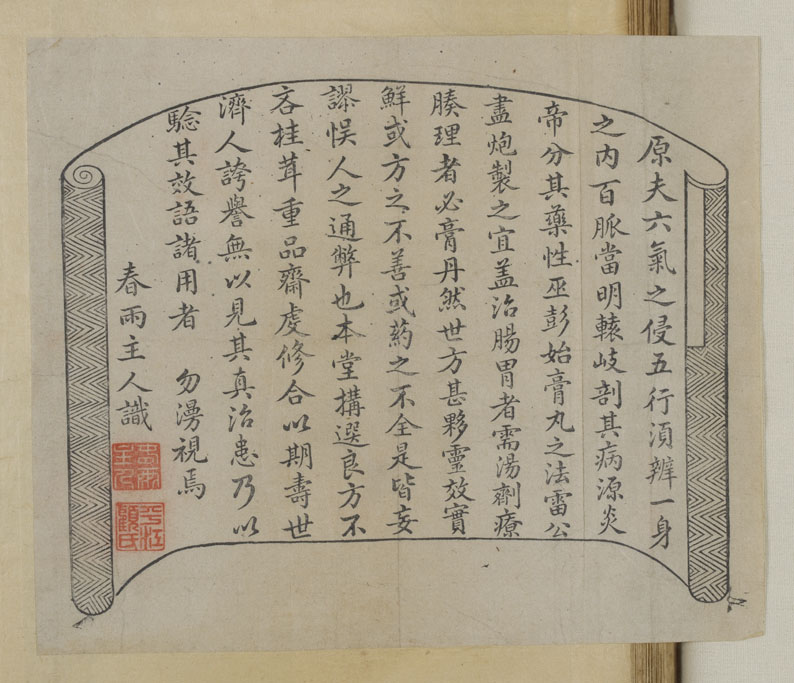 原夫六氣之侵五行湏辨一身
之内百脈當明轅岐剖其病源炎
帝分其藥性巫彭始膏丸之法雷公
盡炮製之宜盖治腸胃者需湯劑療
腠理者必膏丹然世方甚夥靈效實
鮮或方之不善或葯之不全是皆妄
謬悞人之通弊也本堂搆選良方不
吝桂茸重品齋虔修合以期壽世
濟人誇譽無以見其真治患乃以
騐其效語諸用者 勿漫視焉
春雨主人識
春雨主人
平江顧氏